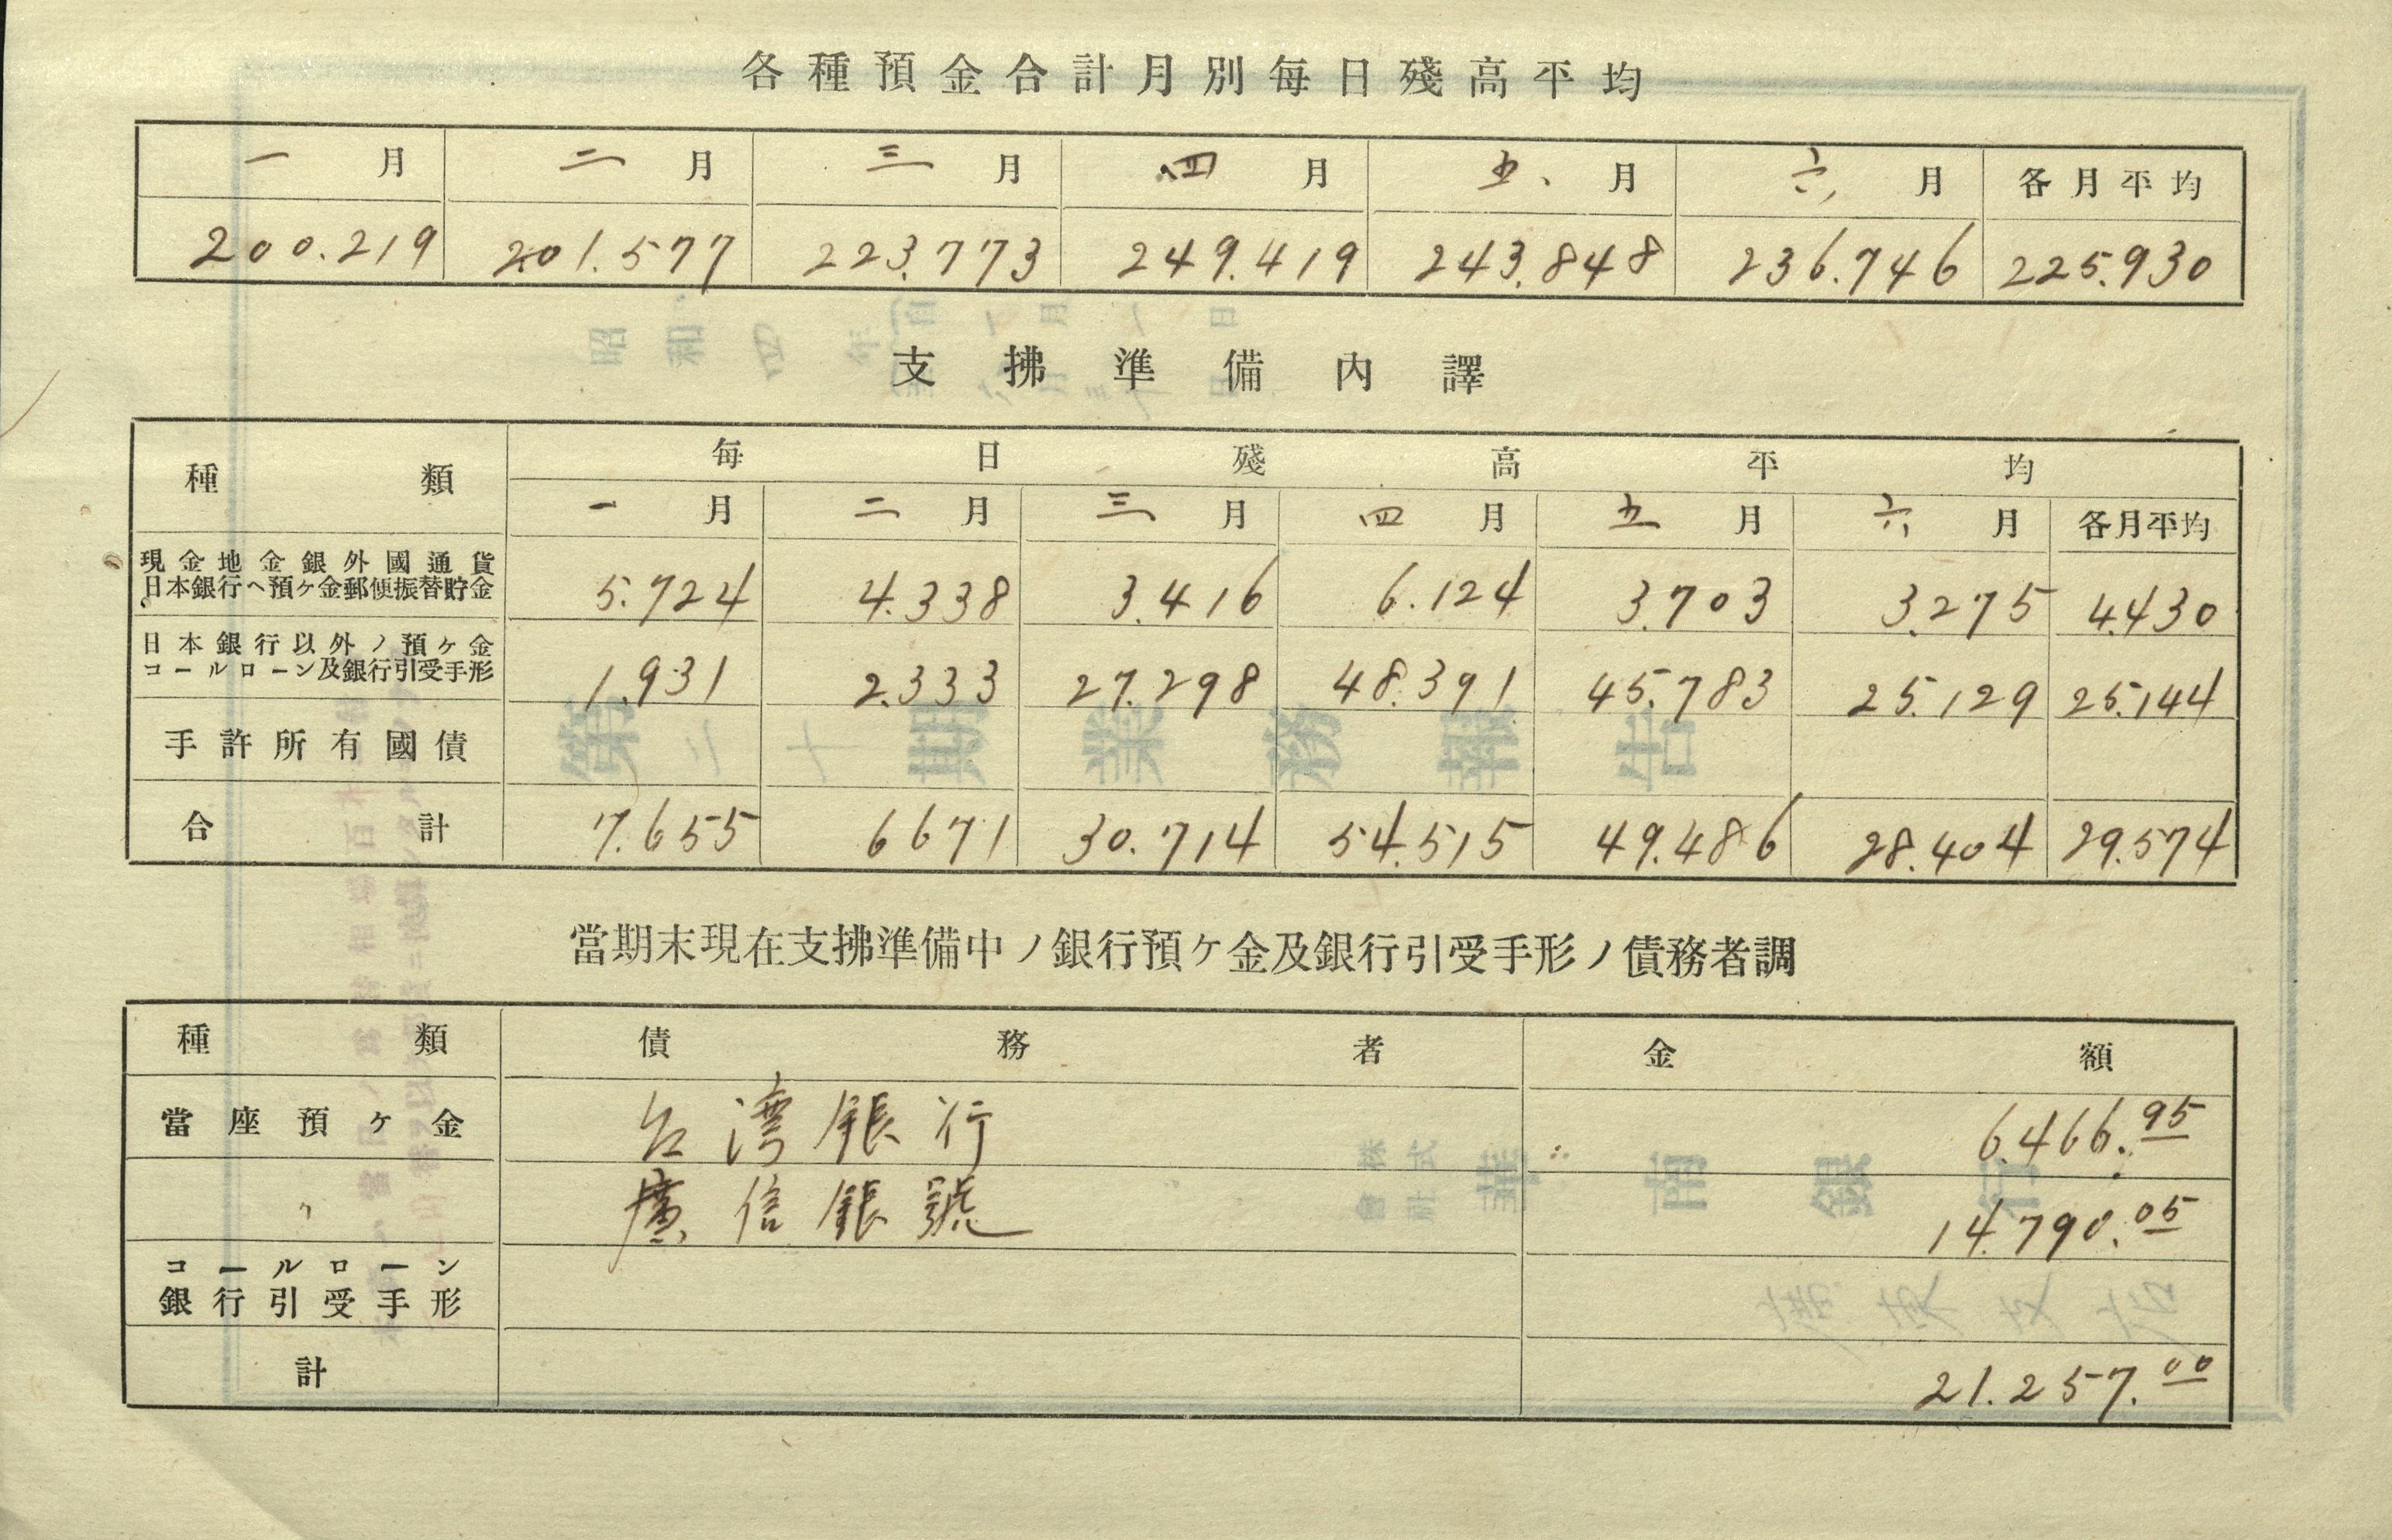 各種預金合計月別每日殘高平均
一月 二月 三月 四月 五月 六月 各月平均
200.219 201.577 223.773 249.419 243.848 236.746 225.930
支拂準備內譯
種類 每日殘高平均
一月 二月 三月 四月 五月 六月 各月平均
現金地金銀外國通貨
日本銀行ヘ預ヶ金郵便振替貯金 5.724 4.338 3.416 6.124 3.703 3.275 4.430
日本銀行以外ノ預ヶ金
コールローン及銀行引受手形 1.931 2.333 27.298 48.391 45.783 25.129 25.144
手許所有國債
合計 7.655 6671 30.714 54.515 49.486 28.404 29.574
當期末現在支拂準備中ノ銀行預ケ金及銀行引受手形ノ債務者調
種類 債務者 金額
當座預ヶ金 台湾銀行 6.466.95
〃 廣信銀號 14.790.05
コールローン
銀行引受手形
計 21.257.00